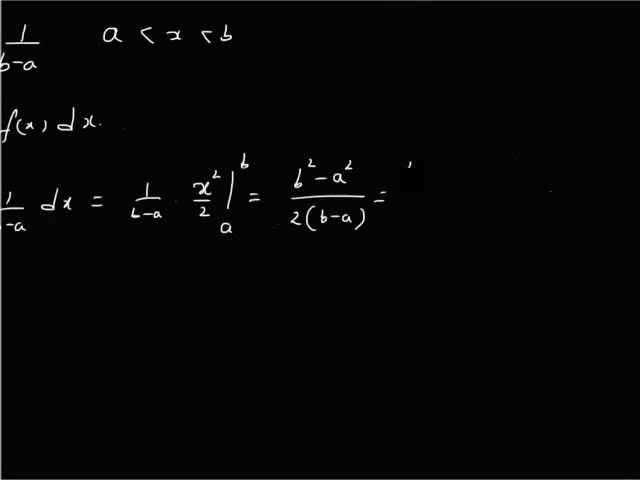 1/(b-a) a < x < b
f(x) dx.
1/(b-a) dx = 1/(b-a) · x²/2 |_a^b = (b² - a²)/(2(b-a)) =